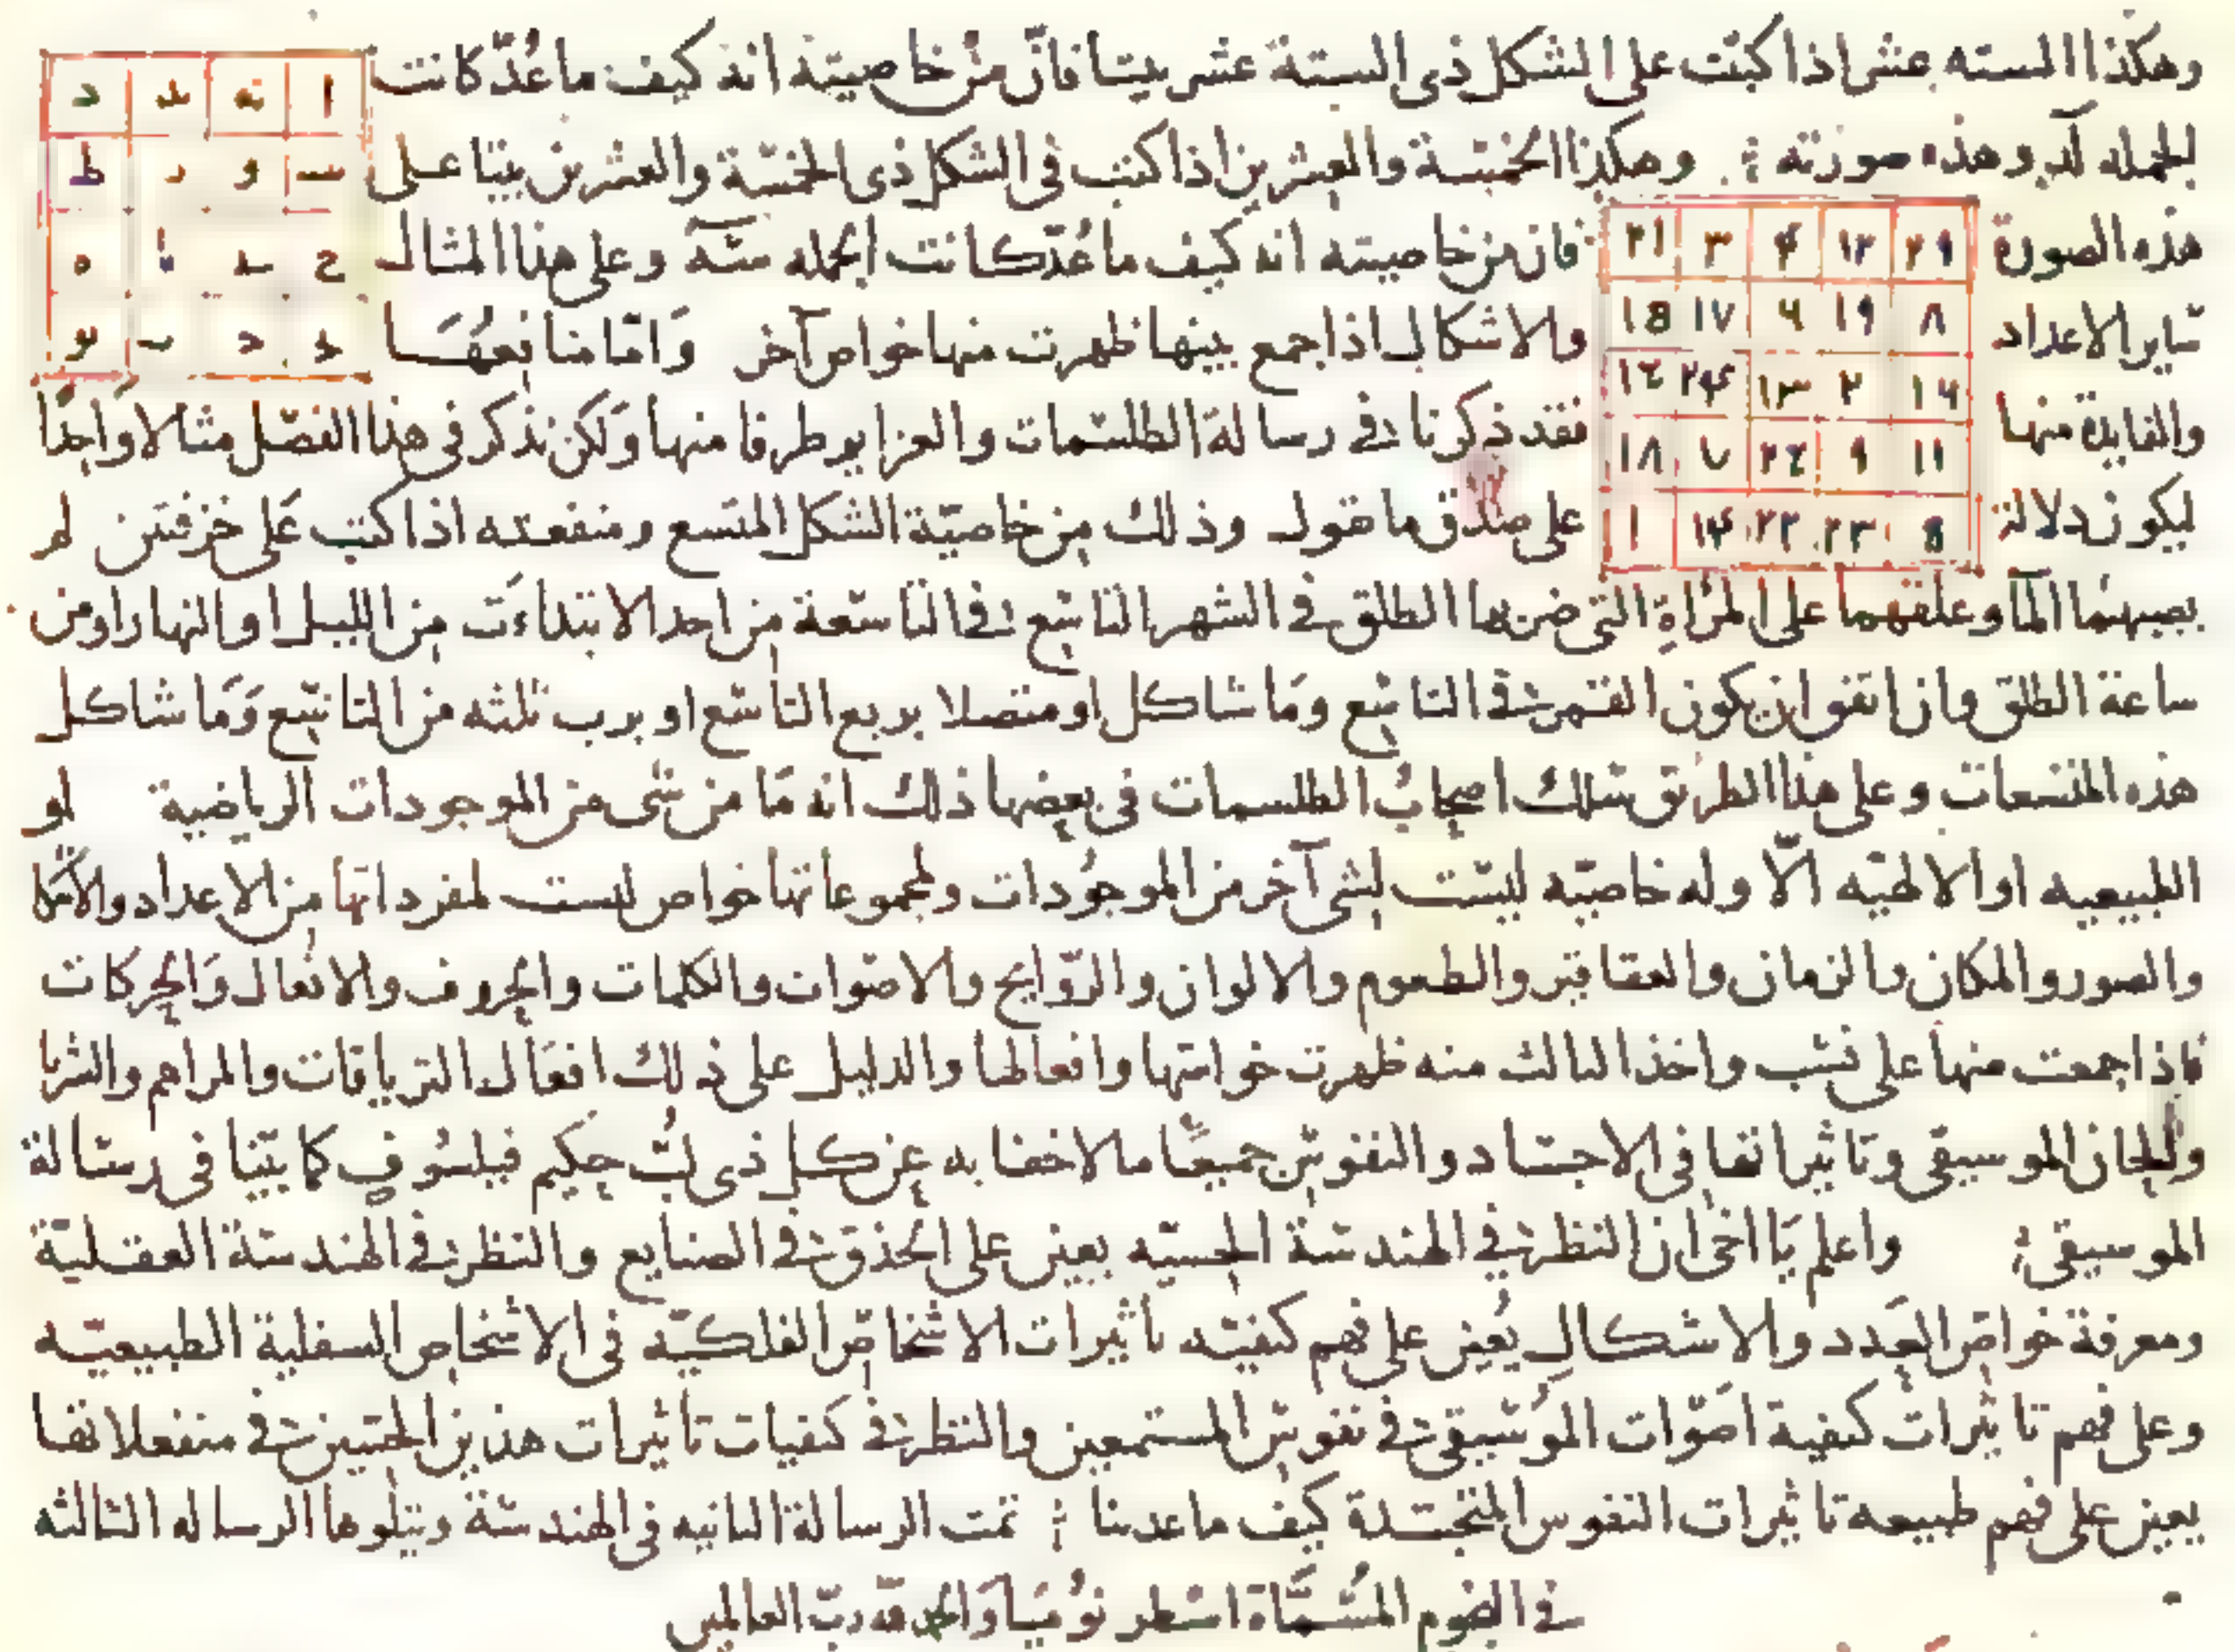 وهكذا السته عشر اذا كتبت على الشكل ذى الستة عشر بيتا فانّ من خاصيته انه كيف ما عُدّ كانت
الجمله لد وهذه صورته وهكذا الخمسة والعشرين اذا كتب فى الشكل ذى الخمسة والعشرين بيتا على
هذه الصورة فان من خاصيته انه كيف ما عُدّ كانت الجمله سَه وعلى هذا المثال
ساير الاعداد والاشكال اذا جمع بينها ظهرت منها خواص آخر وَامّا منافعُهَا
والفايدة منها فقد ذكرنا فى رسالة الطلسمات والعزايم طرفا منها وَلكن نذكر فى هذا الفصل مثالا وَاحِدًا
ليكون دلالة على صدق ما نقول وذلك من خاصيّة الشكل المتسع ومنفعته اذا كتب عَلى خزفتين لم
يصبهما المآ وعلقهما على المرْاةِ التى ضربها الطلق فى الشهر التاسع فى التاسعة من احد الابتداءَت من الليل او النهار او من
ساعة الطلق وان اتفق ان يكون القمر فى التاسع ومَا شاكل او متصلا بربع التاسع او برب ثلثه من التاسع وَمَا شاكل
هذه المتسعات وعلى هذا الطريق سلك اصحابُ الطلسمات فى بعضها ذلك انه مَا من شى من الموجودات الرياضية او
الطبيعيه او الالهيّه الّا وله خاصيّه ليسَت لشى آخر من الموجُودات ولمجموعاتها خواص ليست لمفرداتها من الاعداد والاشكا
والصور والمكان والزمان والعقاقير والطعوم والالوان والرّوايح والاصوات والكلمات والحروف والافعال وَالحركات
فاذا جمعت منها على نسب واخذ التالث منه ظهرت خواصّها وافعالها والدليل على ذلك افعَال الترياقات والمراهم والشربا
والحان الموسيقى وتاثيراتها فى الاجساد والنفوس جميعًا ما لا خفا به عن كل ذى لُبّ حكيم فيلسُوفٍ كما بيّنا فى رسالة
الموسيقى واعلم يَا اخى ان النظر فى الهندسة الحسيّه يعين على الحذق فى الصنايع والنظر فى الهندسة العقلية
ومعرفة خواصّ العَدد والاشكالِ يُعين على فهم كيفيّه تاثيرات الاشخاصّ الفلكيّه فى الاشخاص السفلية الطبيعيّه
وعلى فهم تاثيرات كيفية اصَوات الموُسيقى فى نفوس المستمعين والنظر فى كيفيات تاثيرات هذين الجنسين فى منفعلاتها
يعين على فهم طبيعه تاثيرات النفوس المتجسّدة كيف ما عدنا تمت الرسالة الثانيه فى الهندسة ويتلوها الرساله الثالثه
فى النجوم المُسَمَّاة اسطرنوُميَا وَالحمد لله ربّ العالمين
٢١ ٣ ۴ ١٢ ٢٩
١٥ ١٧ ٦ ١٩ ٨
١٤ ٢۴ ١٣ ٢ ١٦
١٨ ٧ ٢٤ ٩ ١١
١ ١۴ ٢٢ ٢٣ ٥